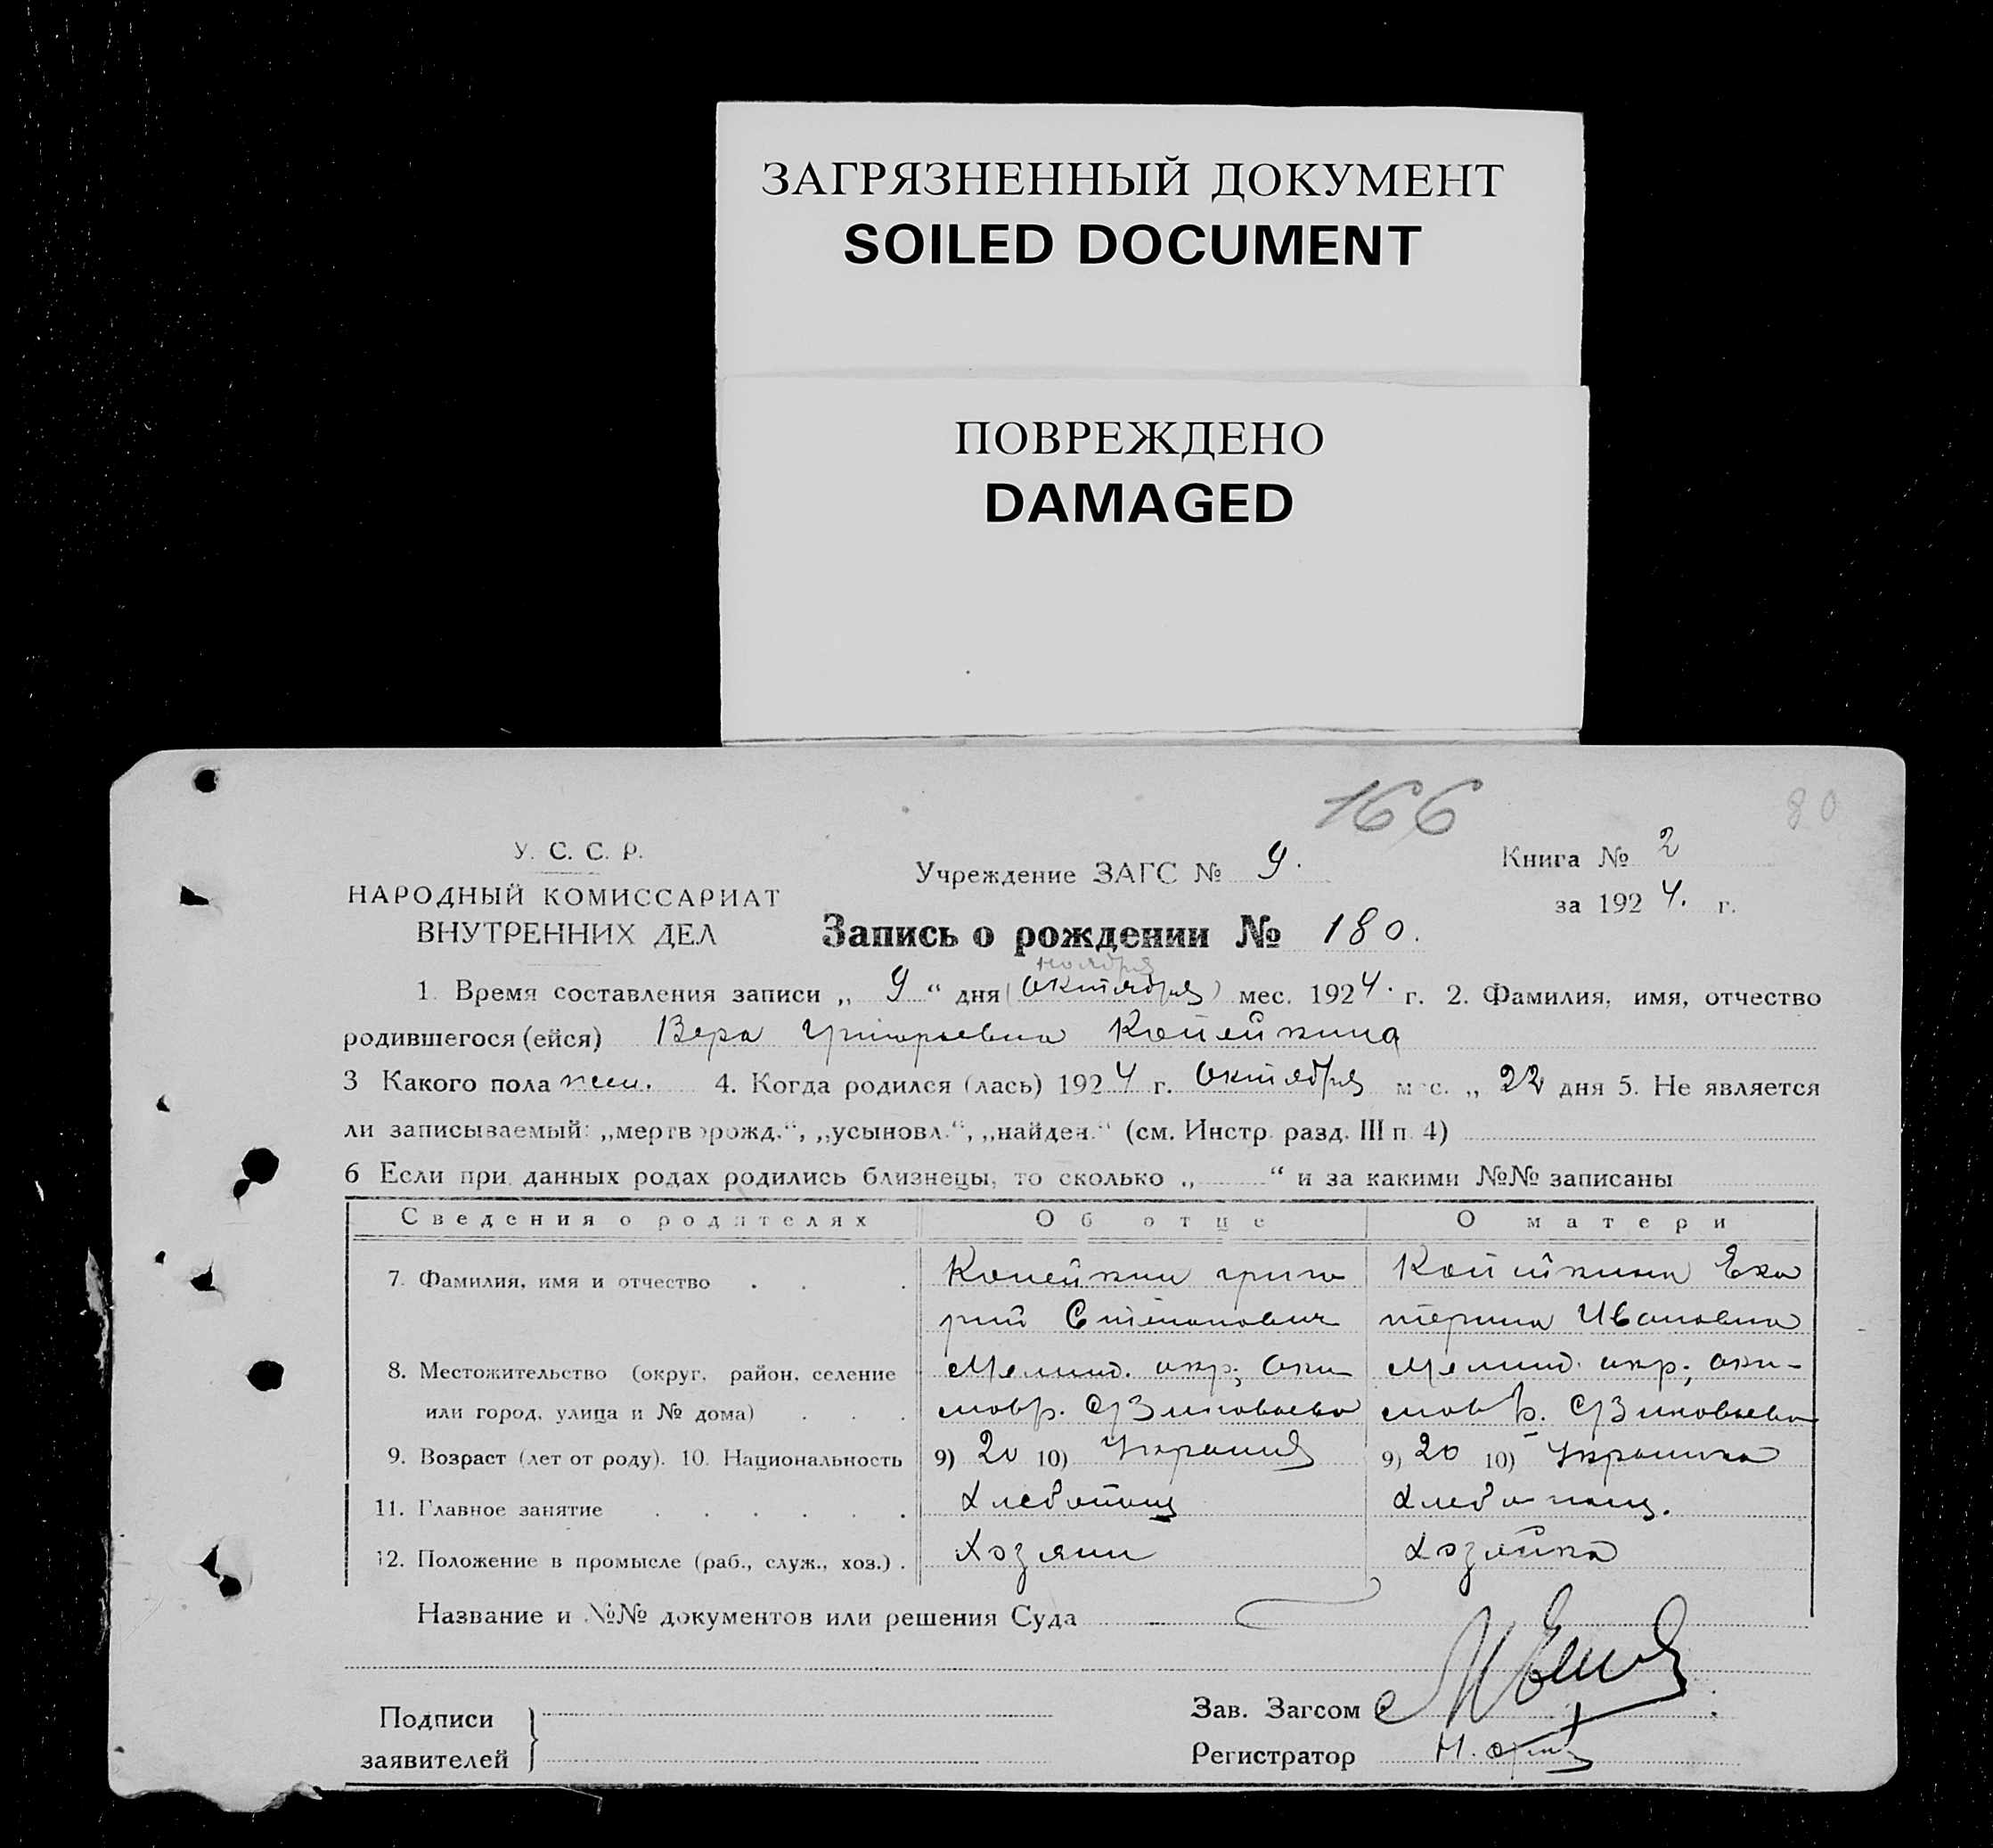 ЗАГРЯЗНЕННЫЙ ДОКУМЕНТ
SOILED DOCUMENT
ПОВРЕЖДЕНО
DAMAGED
166
80
У. С. С. Р.
НАРОДНЫЙ КОМИССАРИАТ
ВНУТРЕННИХ ДЕЛ
Учреждение ЗАГС № 9.
Книга № 2
за 1924. г.
Запись о рождении № 180.
ноября
1. Время составления записи „ 9 “ дня (октября) мес. 1924. г. 2. Фамилия, имя, отчество
родившегося (ейся) Вера Григорьевна Копейкина
3 Какого пола жен. 4. Когда родился (лась) 1924 г. Октября мес. „ 22 дня 5. Не является
ли записываемый: „мертворожд.“, „усыновл.“, „найден.“ (см. Инстр. разд. III п. 4)
6 Если при данных родах родились близнецы, то сколько „ “ и за какими №№ записаны
Сведения о родителях Об отце О матери
7. Фамилия, имя и отчество . . . Копейкин Григо Копейкина Ека
рий Степанович терина Ивановна
8. Местожительство (округ, район, селение Мелит. окр., Аки Мелит. окр., аки-
или город, улица и № дома) . . . мовр. с/Зиновьево мовр. с/Зиновьево
9. Возраст (лет от роду). 10. Национальность 9) 20 10) Украинец 9) 20 10) Украинка
11. Главное занятие . . . . . . Хлебопаш Хлебопаш.
12. Положение в промысле (раб., служ., хоз.) . Хозяин Хозяйка
Название и №№ документов или решения Суда
Подписи
заявителей
Зав. Загсом
Регистратор Н.